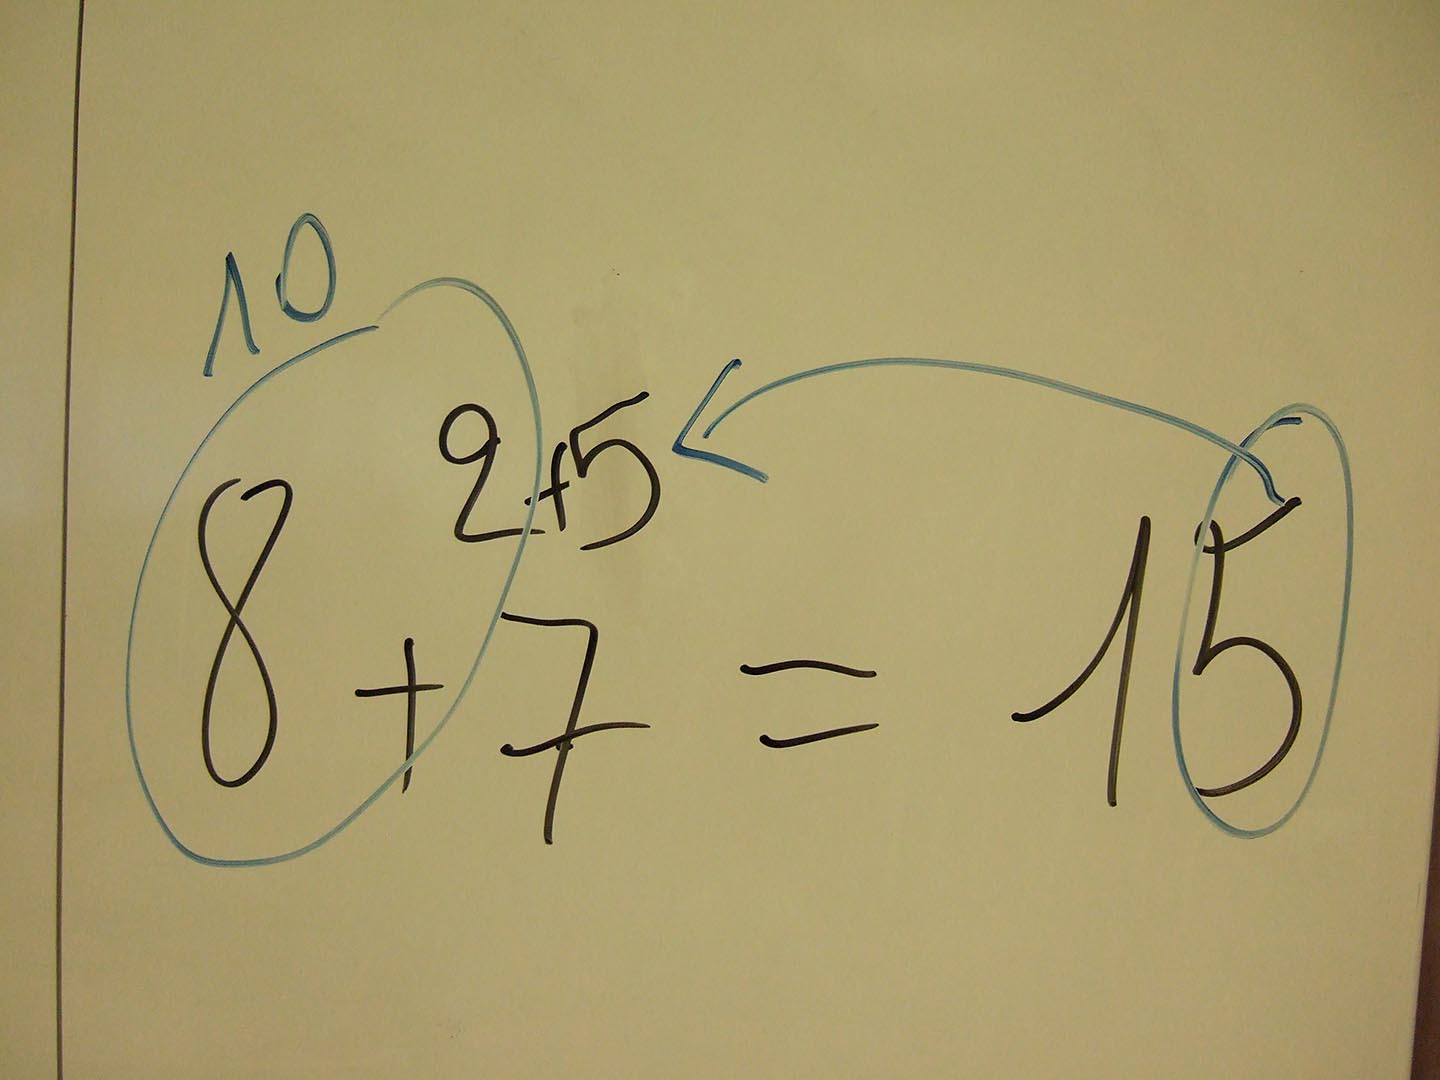 10
2+5
8+7=15